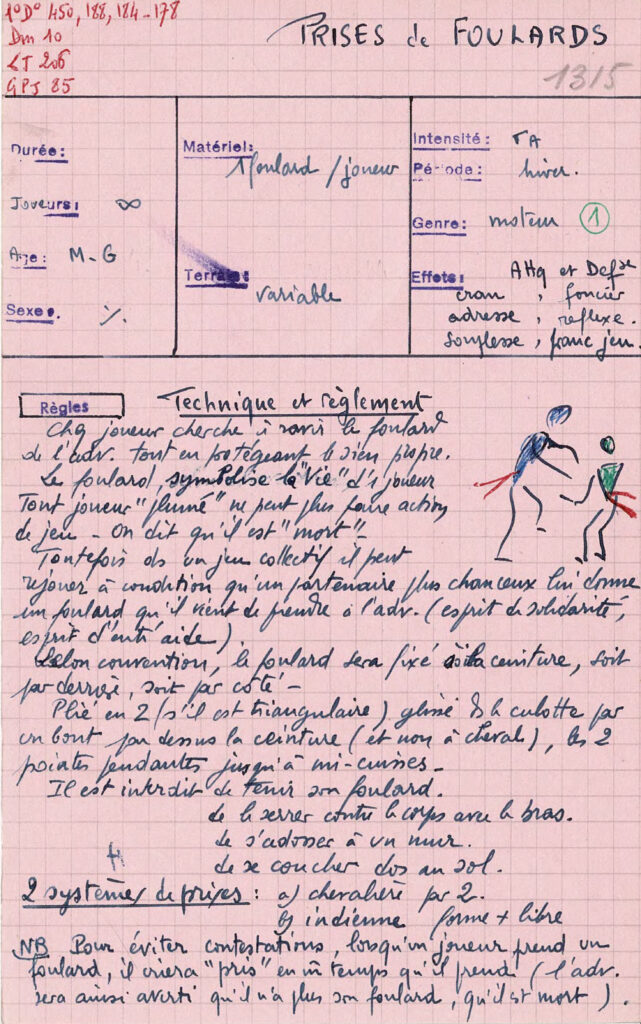 1°D° 450, 188, 184-178
Dm 10
LT 206
GPJ 85
PRISES de FOULARDS
1315
Durée:
Joueurs: ∞
Age: M-G
Sexe:
Matériel:
1 foulard / joueur
Terrain:
variable
Intensité: TA
Période: hiver.
Genre: moteur 1
Effets: Attq et Defse
cran, foncier
adresse, réflexe.
Souplesse, franc jeu.
Règles
Technique et règlement
Chq joueur cherche à ravir le foulard
de l'adv. tout en protégeant le sien propre.
Le foulard symbolise la "Vie" d'1 joueur
Tout joueur "plumé" ne peut plus faire action
de jeu - On dit qu'il est "mort" -
Toutefois ds un jeu collectif il peut
rejouer à condition qu'un partenaire plus chanceux lui donne
un foulard qu'il vient de prendre à l'adv. (esprit de solidarité,
esprit d'entr'aide).
Selon convention, le foulard sera fixé à la ceinture, soit
par derrière, soit par côté -
Plié en 2 (s'il est triangulaire) glissé ds la culotte par
un bout par dessus la ceinture (et non à cheval), les 2
pointes pendantes jusqu'à mi-cuisses -
Il est interdit de tenir son foulard.
de le serrer contre le corps avec le bras.
de s'adosser à un mur.
de se coucher dos au sol.
2 systèmes de prises : a) chevalière par 2.
b) indienne forme + libre
NB Pour éviter contestations, lorsqu'un joueur prend un
foulard, il criera "pris" en m̂ temps qu'il prend (l'adv.
sera ainsi averti qu'il n'a plus son foulard, qu'il est mort).